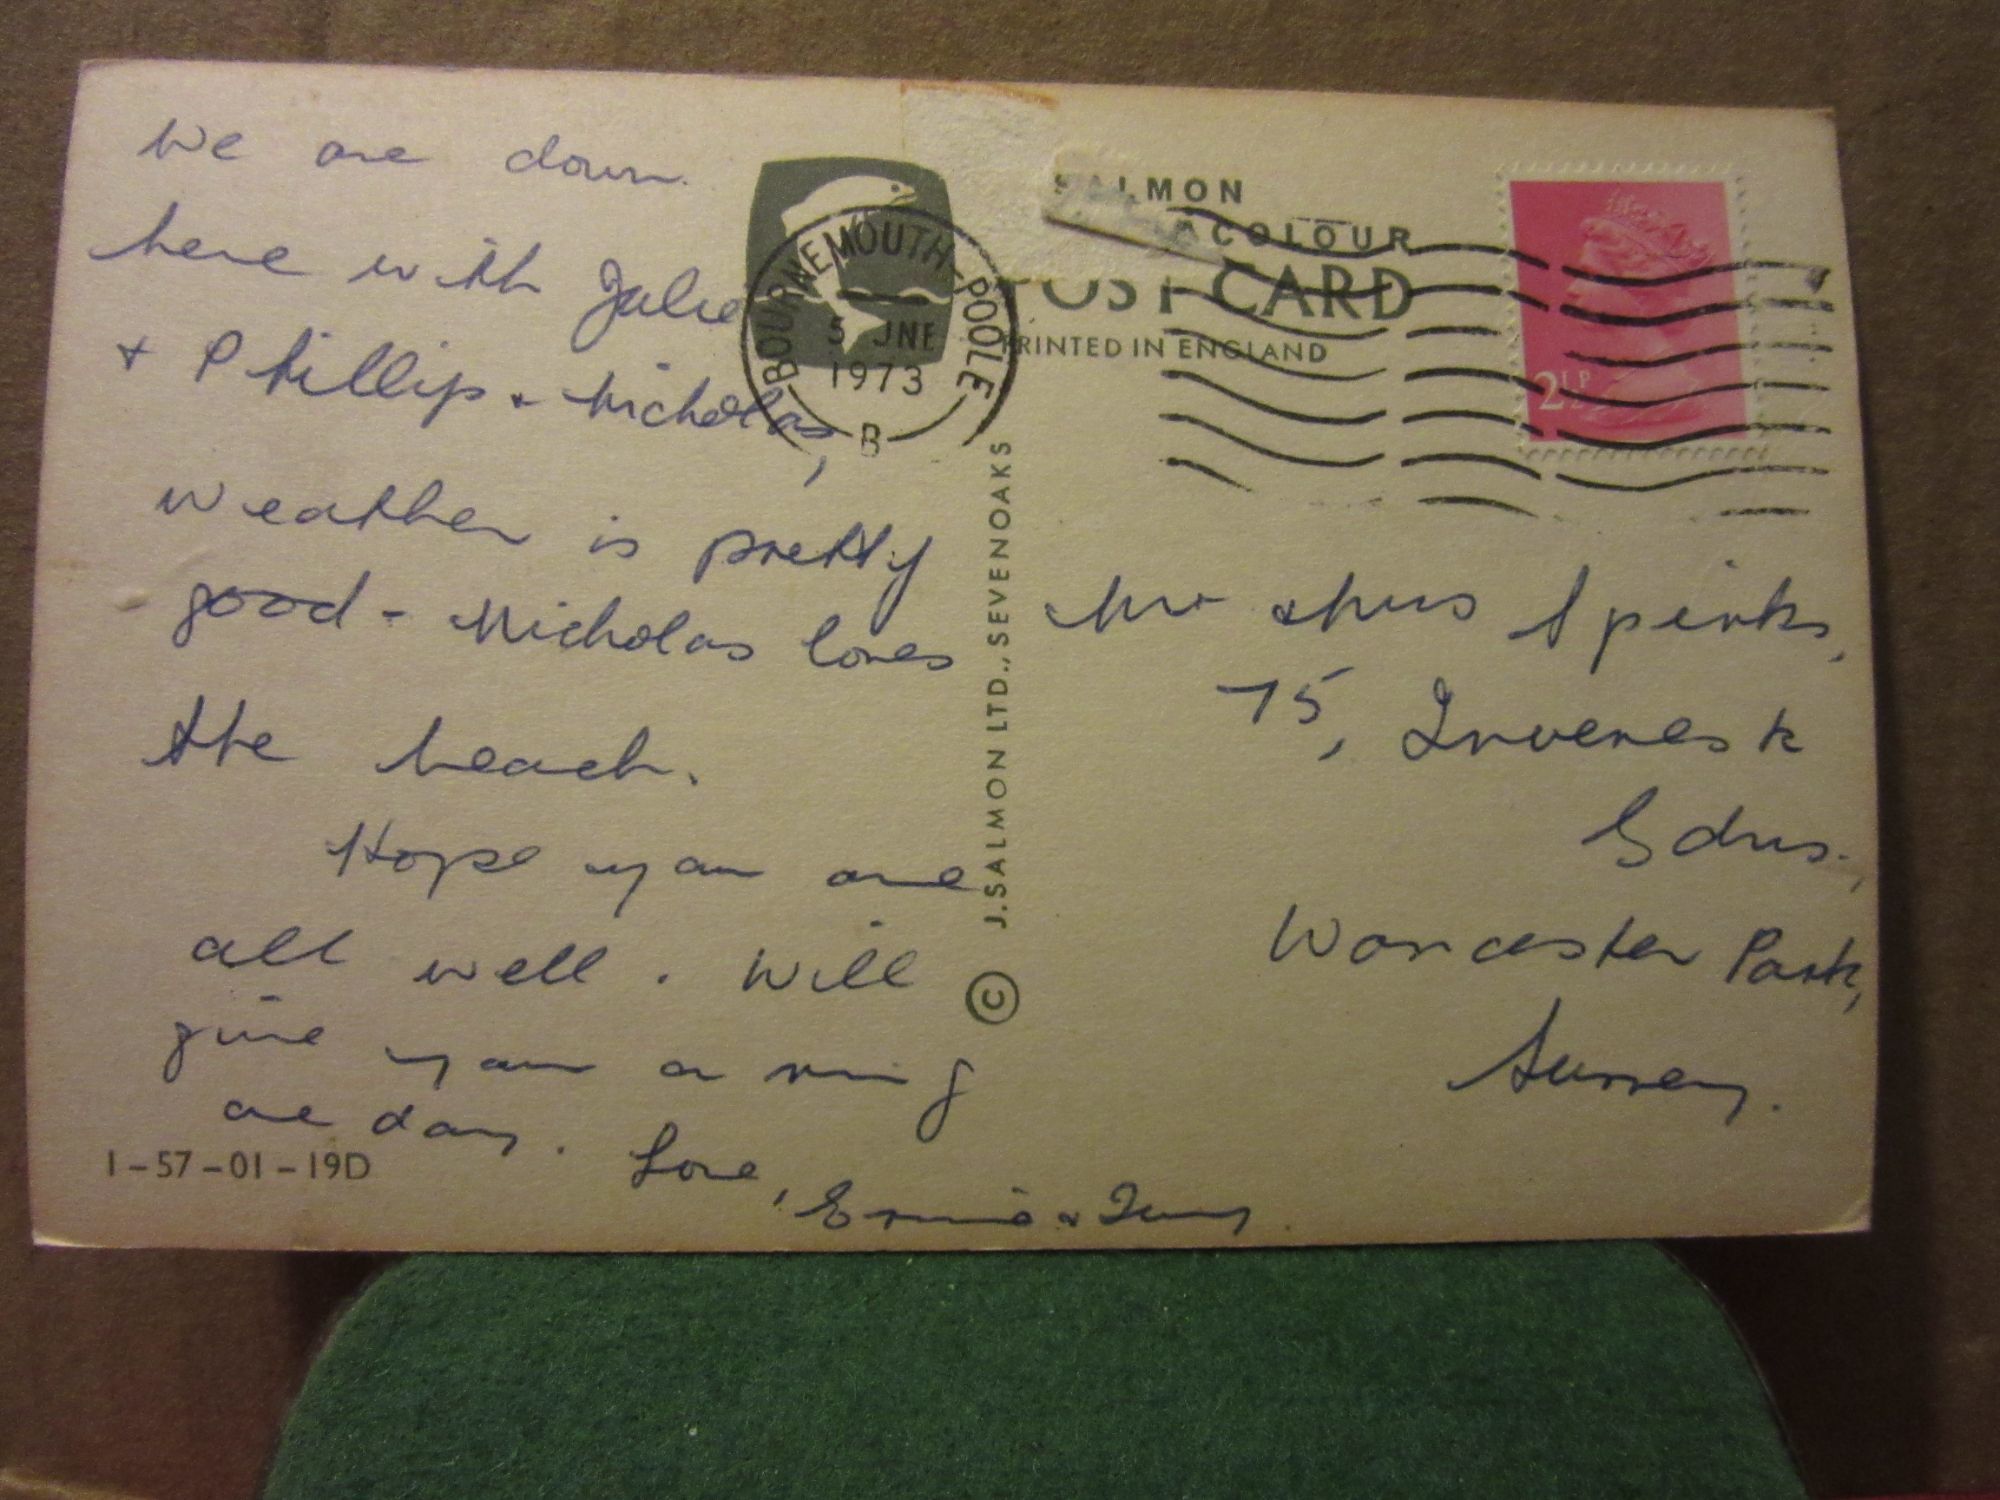 We are down
here with Julie
+ Phillip + Nicholas,
weather is pretty
good - Nicholas loves
the beach.
Hope you are
all well. Will
give you a ring
one day. Love,
Ernie +
1-57-01-19D
BOURNEMOUTH-POOLE
5 JNE
1973
B
SALMON
COLOUR
POST CARD
PRINTED IN ENGLAND
2½P
© J. SALMON LTD., SEVENOAKS
Mr & Mrs Spinks,
75, Inveresk
Gdns.,
Worcester Park,
Surrey.